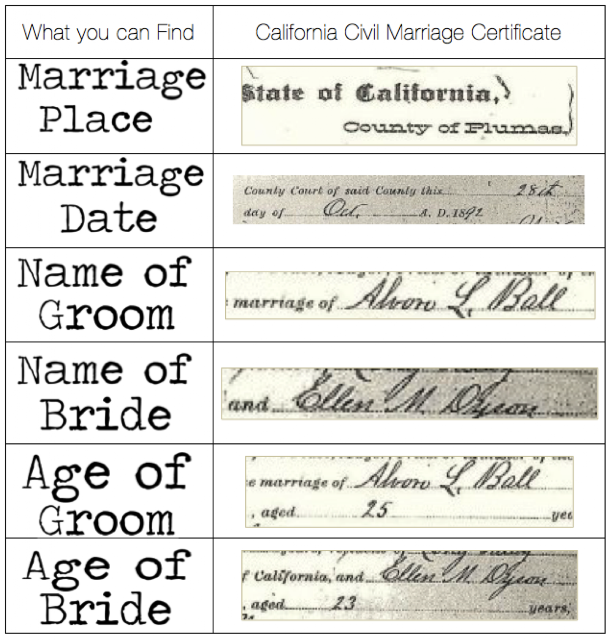 What you can Find
California Civil Marriage Certificate
Marriage
Place
State of California,
County of Plumas,
Marriage
Date
County Court of said County this 28th
day of Oct. A. D. 1892
Name of
Groom
marriage of Alvon L. Ball
Name of
Bride
and Ellen M. Dyson
Age of
Groom
e marriage of Alvon L. Ball
, aged 25 yea
Age of
Bride
f California, and Ellen M. Dyson
, aged 23 years,